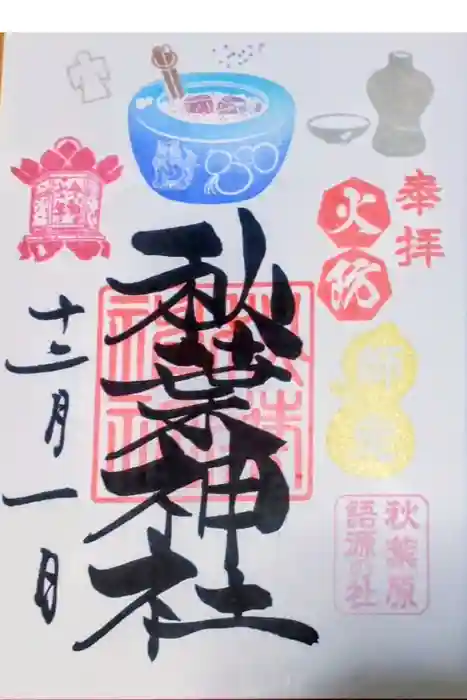 奉拝
火防
秋葉原
語源の社
秋葉神社
十二月一日